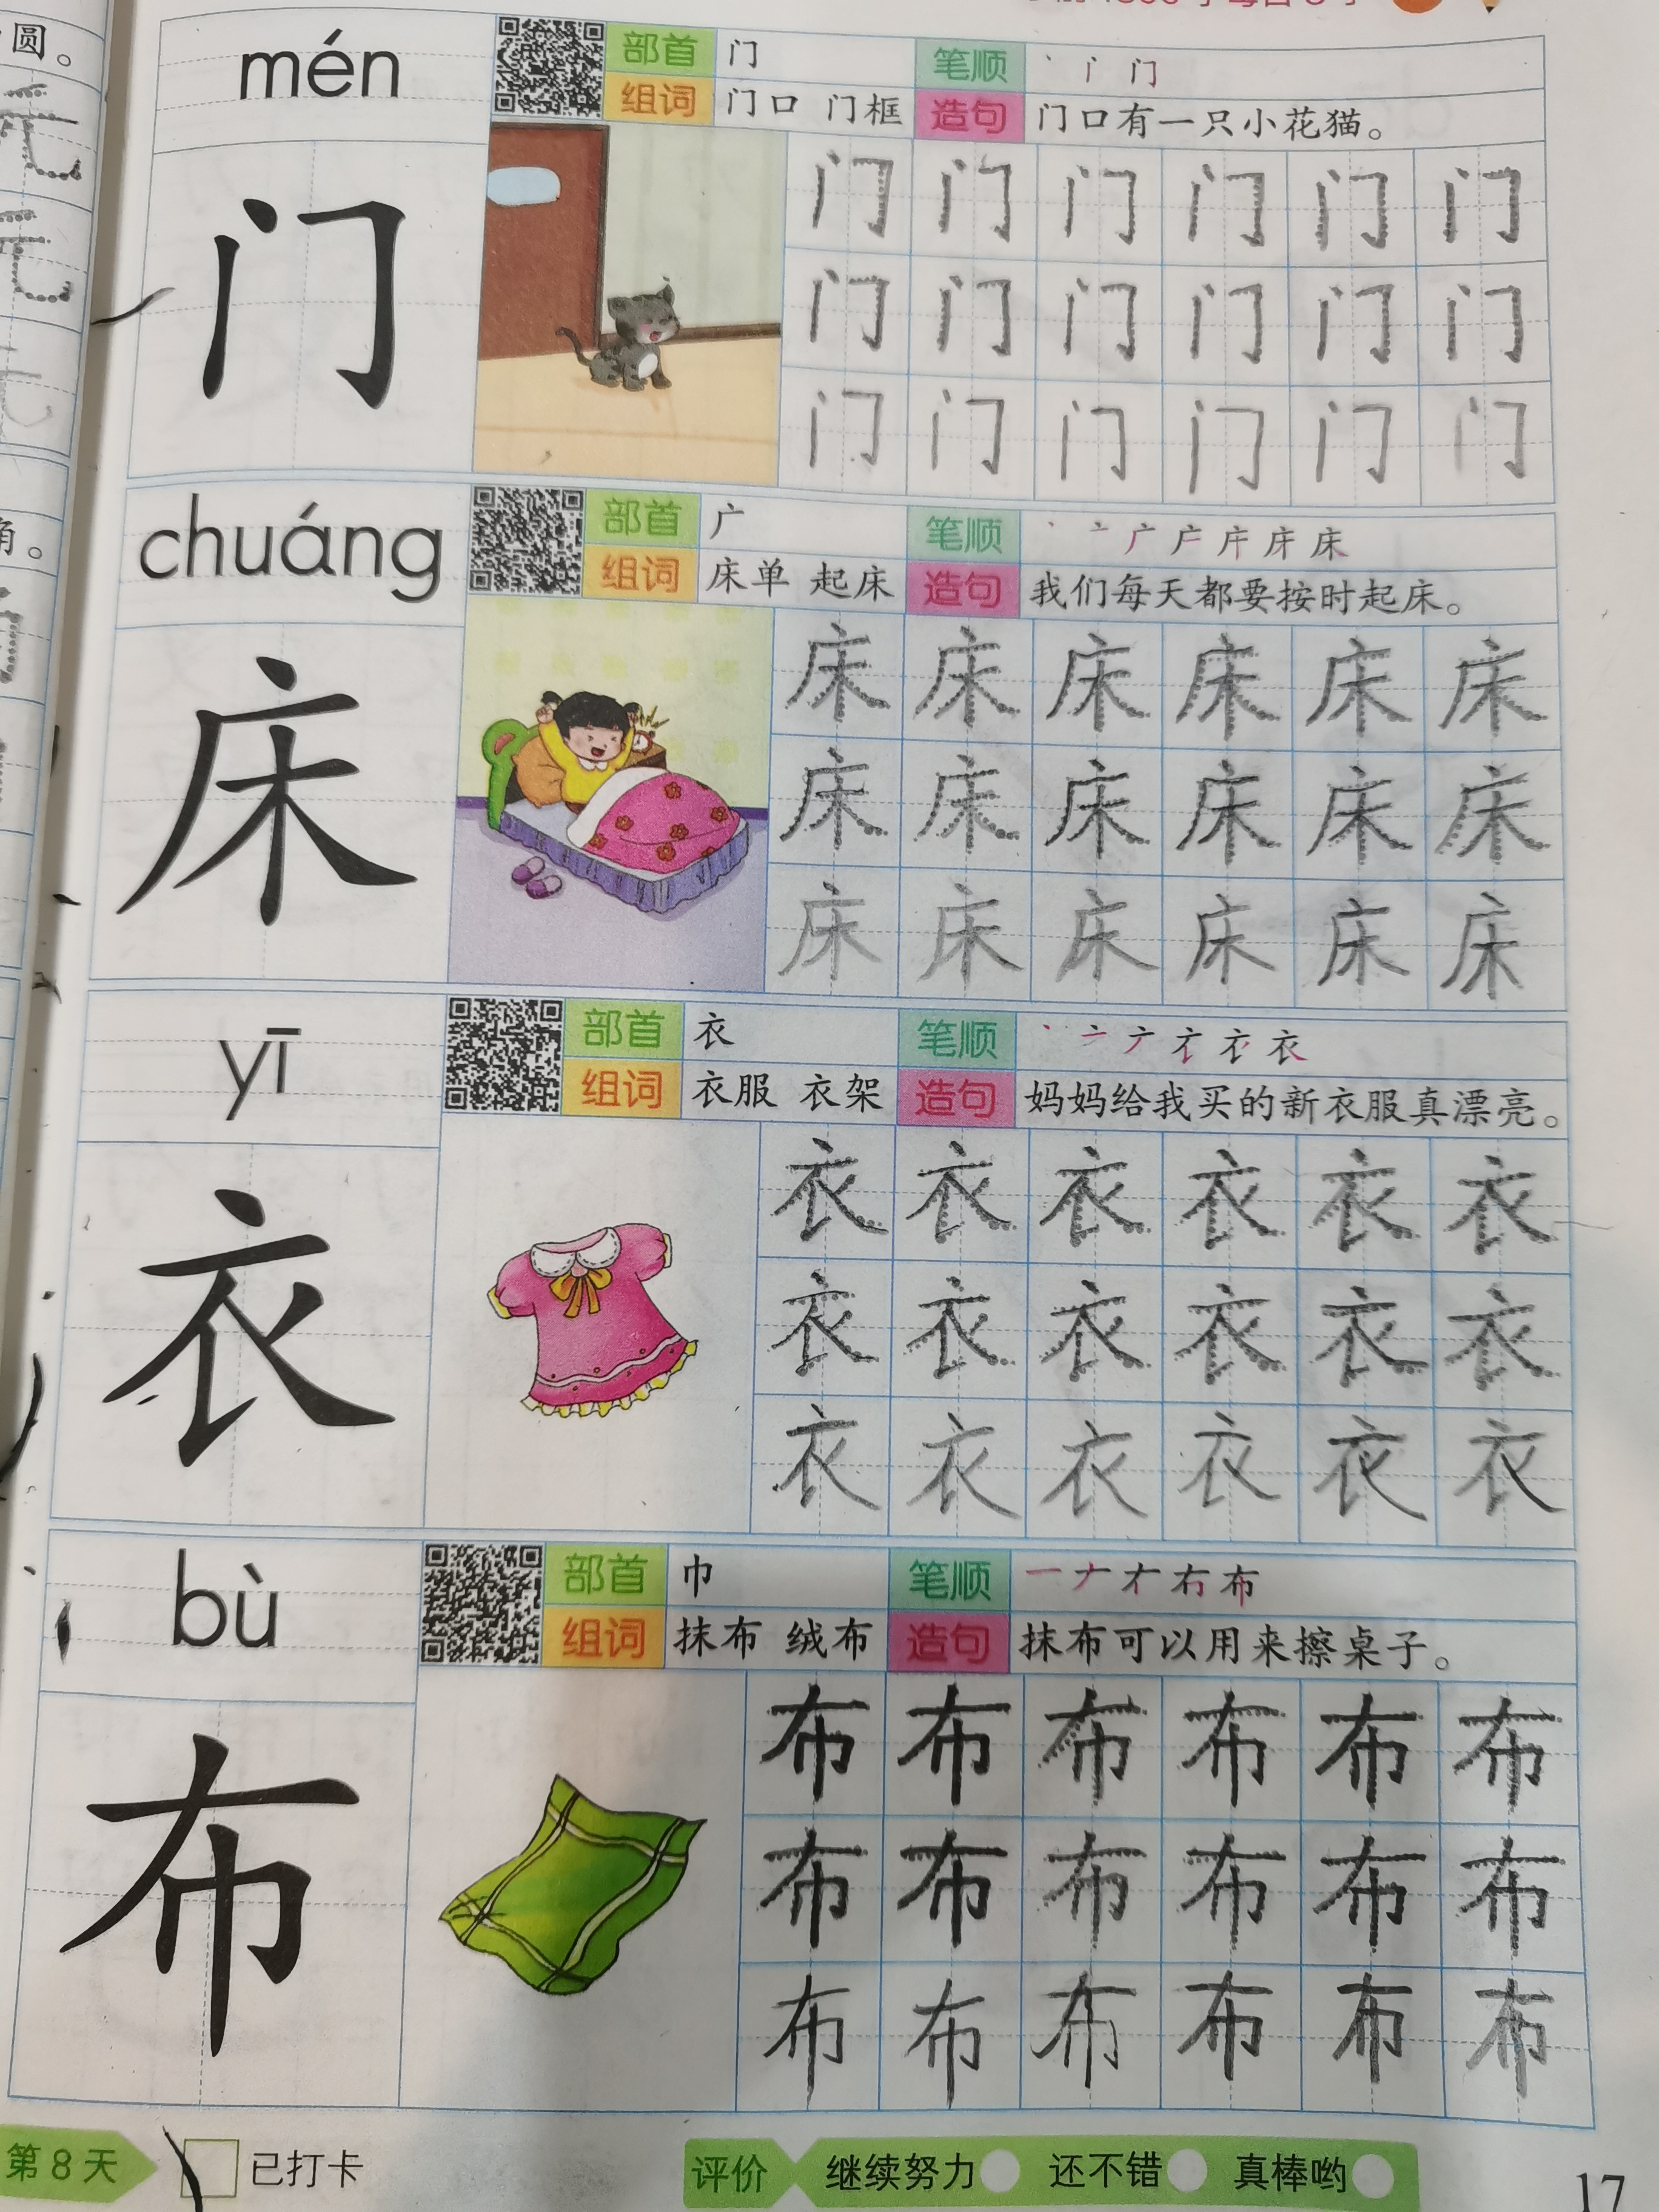 圆。
mén
部首 门 笔顺 丶 门
组词 门口 门框 造句 门口有一只小花猫。
门 门 门 门 门 门 门
门 门 门 门 门 门
门 门 门 门 门 门
角。
chuáng
部首 广 笔顺 丶 亠 广 庐 床 床
组词 床单 起床 造句 我们每天都要按时起床。
床 床 床 床 床 床 床
床 床 床 床 床 床
床 床 床 床 床 床
yī
部首 衣 笔顺 丶 亠 衣 衣
组词 衣服 衣架 造句 妈妈给我买的新衣服真漂亮。
衣 衣 衣 衣 衣 衣 衣
衣 衣 衣 衣 衣 衣
衣 衣 衣 衣 衣 衣
bù
部首 巾 笔顺 一 ナ 才 右 布
组词 抹布 绒布 造句 抹布可以用来擦桌子。
布 布 布 布 布 布 布
布 布 布 布 布 布
布 布 布 布 布 布
第8天 已打卡 评价 继续努力 还不错 真棒哟 17